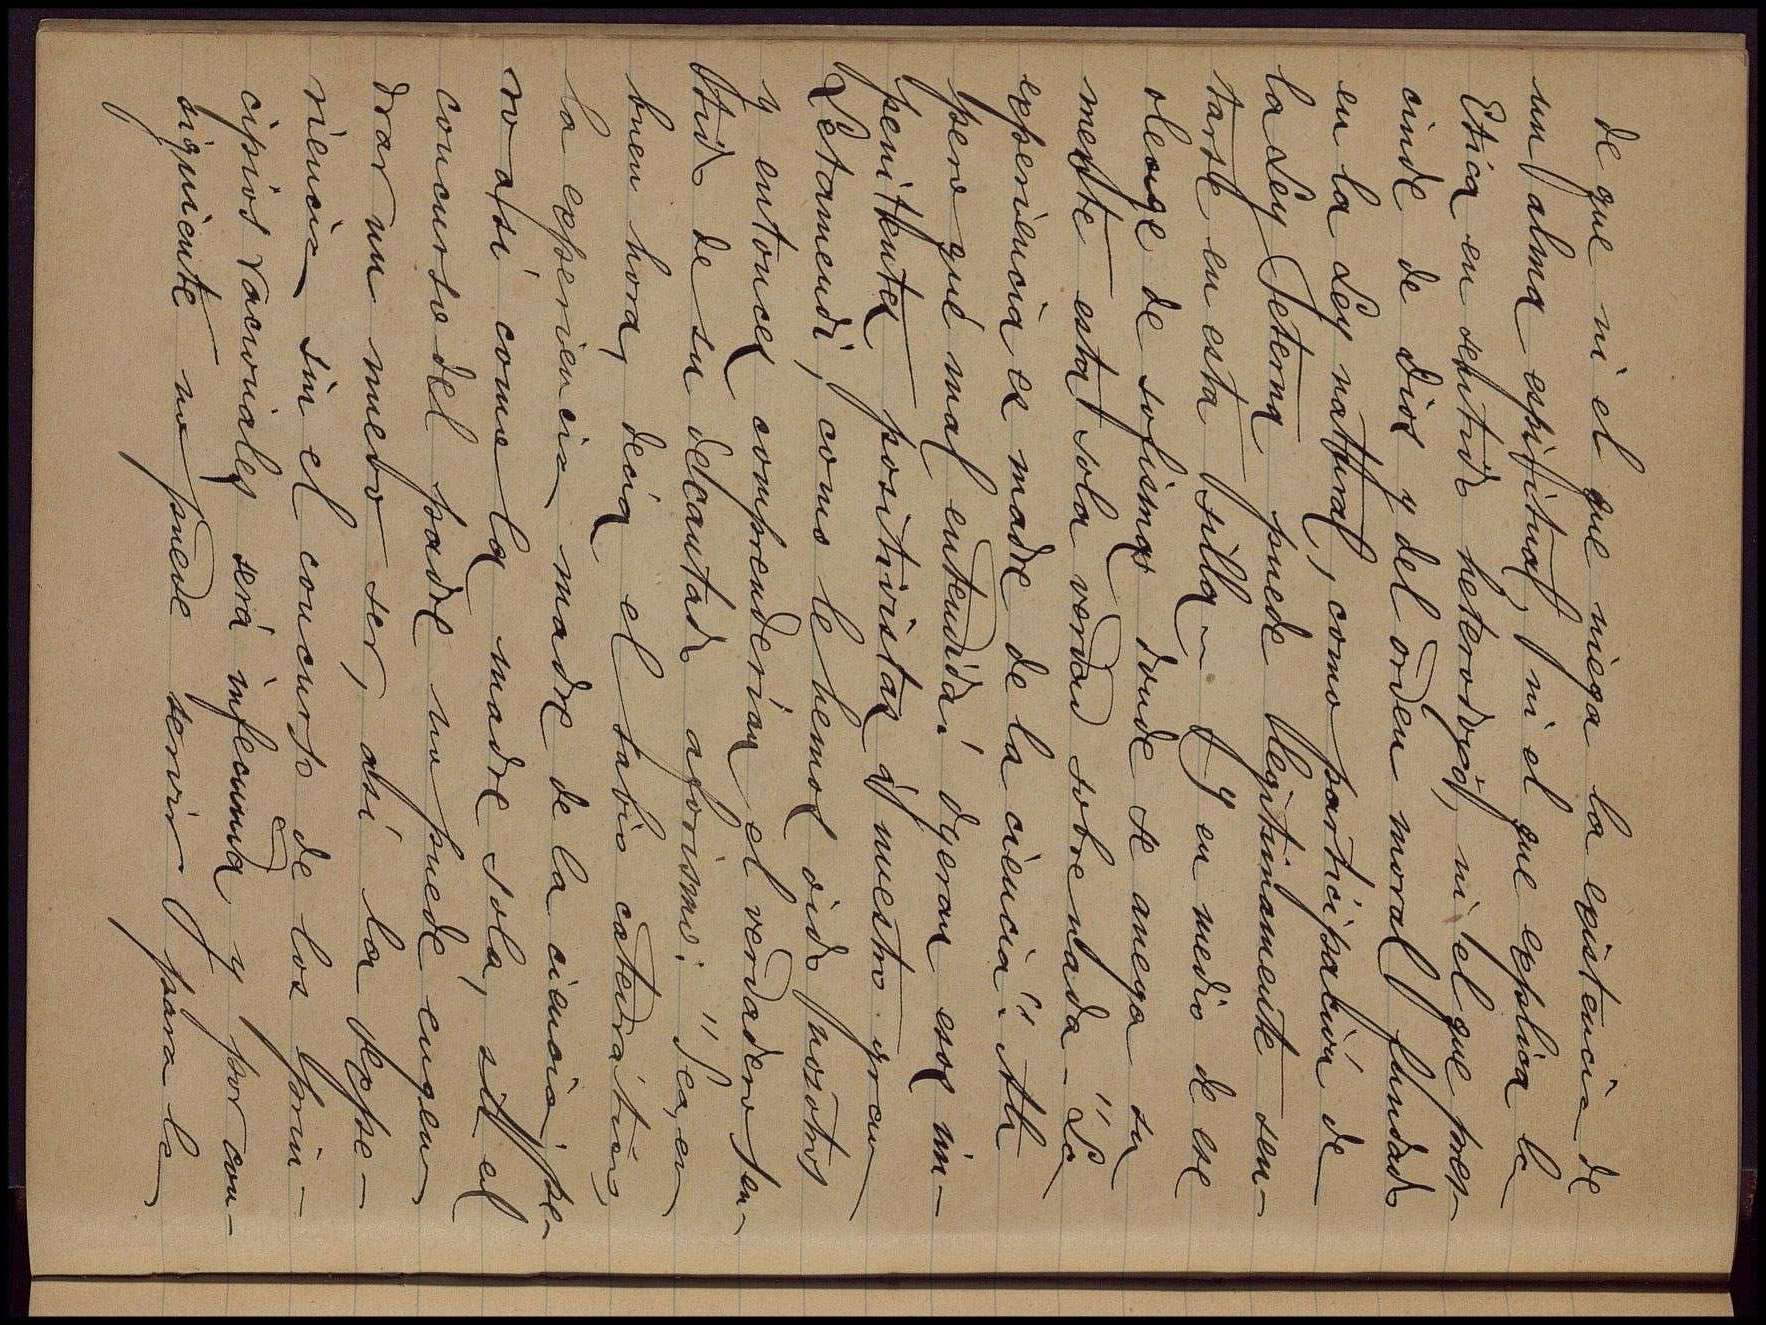 de que ni el que niega la existencia de
un alma espiritual, ni el que explica la
Etica en sentido heterodojo, ni el que pres-
cinde de Dios y del orden moral fundado
en la Ley natural, como participación de
la Ley Eterna puede legitimamente sen-
tarse en esta silla. - Y en medio de ese
oleage de sofismas donde se anega su
mente esta sola verdad sobrenada - "La
experiencia es madre de la ciencia". Ah
pero qué mal entendida! dgeran esos im-
penitentes positivistas á nuestro gran
Letamendi, como le hemos oido nosotros
y entonces comprenderian el verdadero sen-
tido de su decantado aforismo. "Sea, en
buen hora, decia el sabio catedrático,
la experiencia madre de la ciencia; pe-
ro asi como la madre sola, sin el
concurso del padre no puede engen-
drar un nuevo ser, asi la expe-
riencia sin el concurso de los prin-
cipios racionales será infecunda y por con-
siguiente no puede servir para la